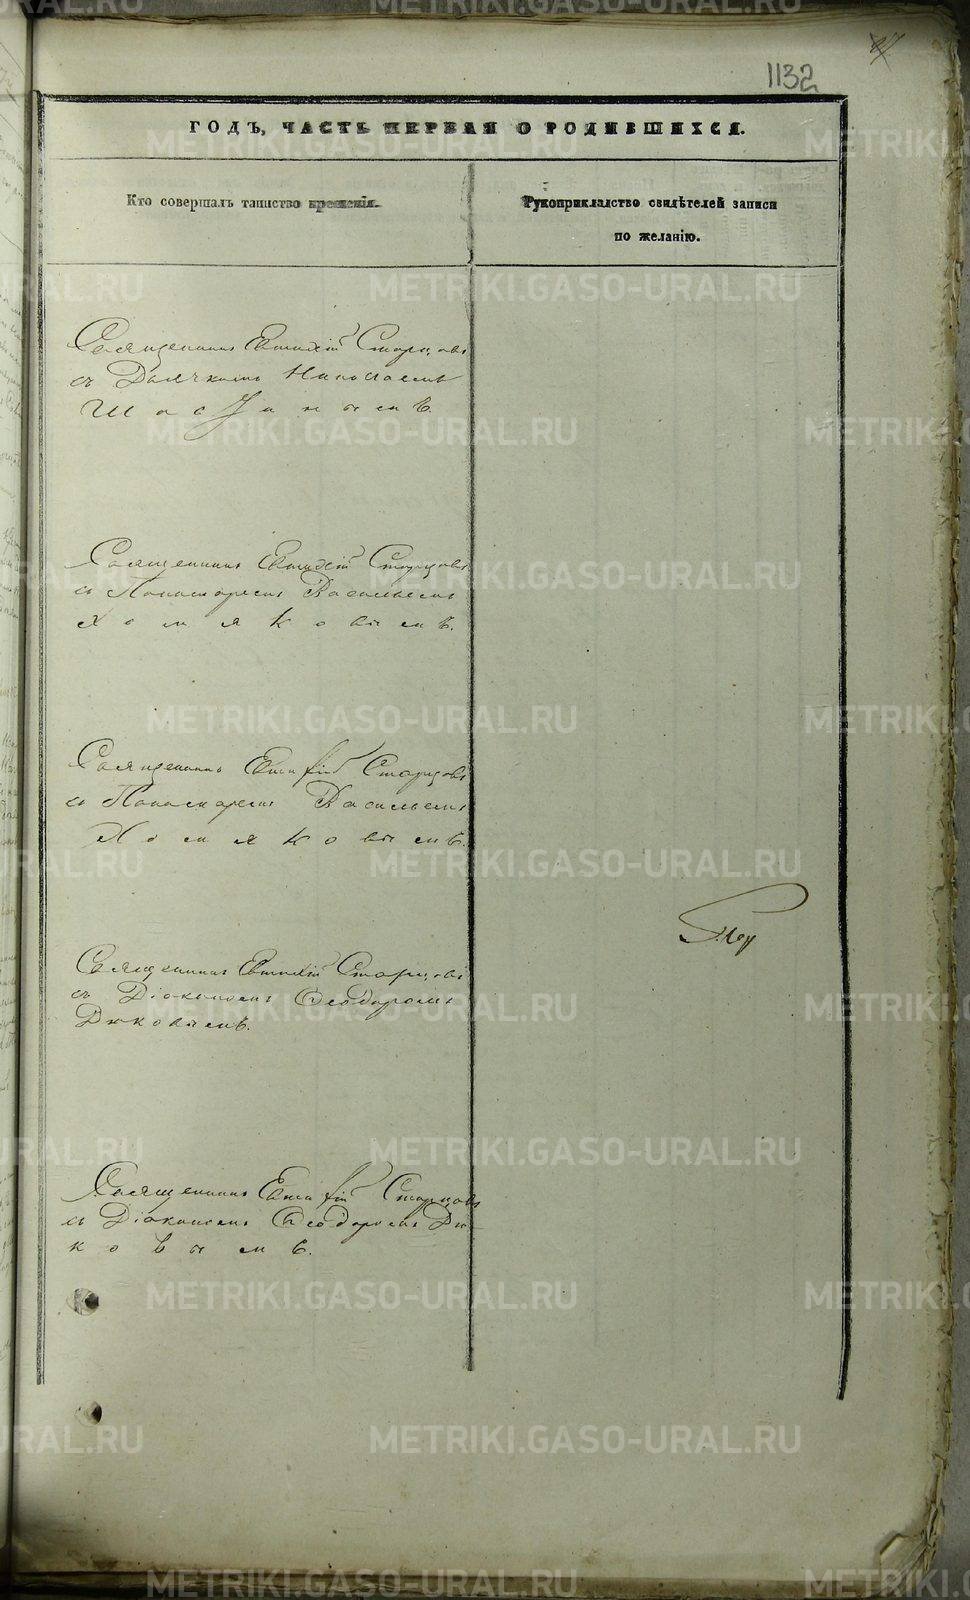 1132
ГОДЪ, ЧАСТЬ ПЕРВАЯ О РОДИВШИХСЯ.
Кто совершалъ таинство крещенія.
Рукоприкладство свидѣтелей записи
по желанію.
Священникъ Евтихій Старцовъ
съ Дьячкомъ
Священникъ Евтихій Старцовъ
съ Пономаремъ Васильемъ
Хомяковымъ.
Священникъ Евтихій Старцовъ
съ Пономаремъ Васильемъ
Хомяковымъ.
Священникъ Евтихій Старцовъ
съ Діакономъ Ѳеодоромъ
Дюковымъ.
Священникъ Евтихій Старцовъ
съ Діакономъ Ѳеодоромъ Дю-
ковымъ.
METRIKI.GASO-URAL.RU